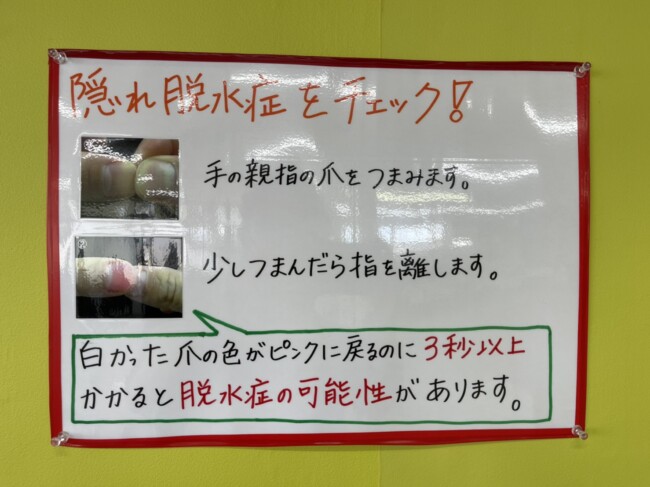 隠れ脱水症をチェック!
手の親指の爪をつまみます。
少しつまんだら指を離します。
白かった爪の色がピンクに戻るのに3秒以上
かかると脱水症の可能性があります。